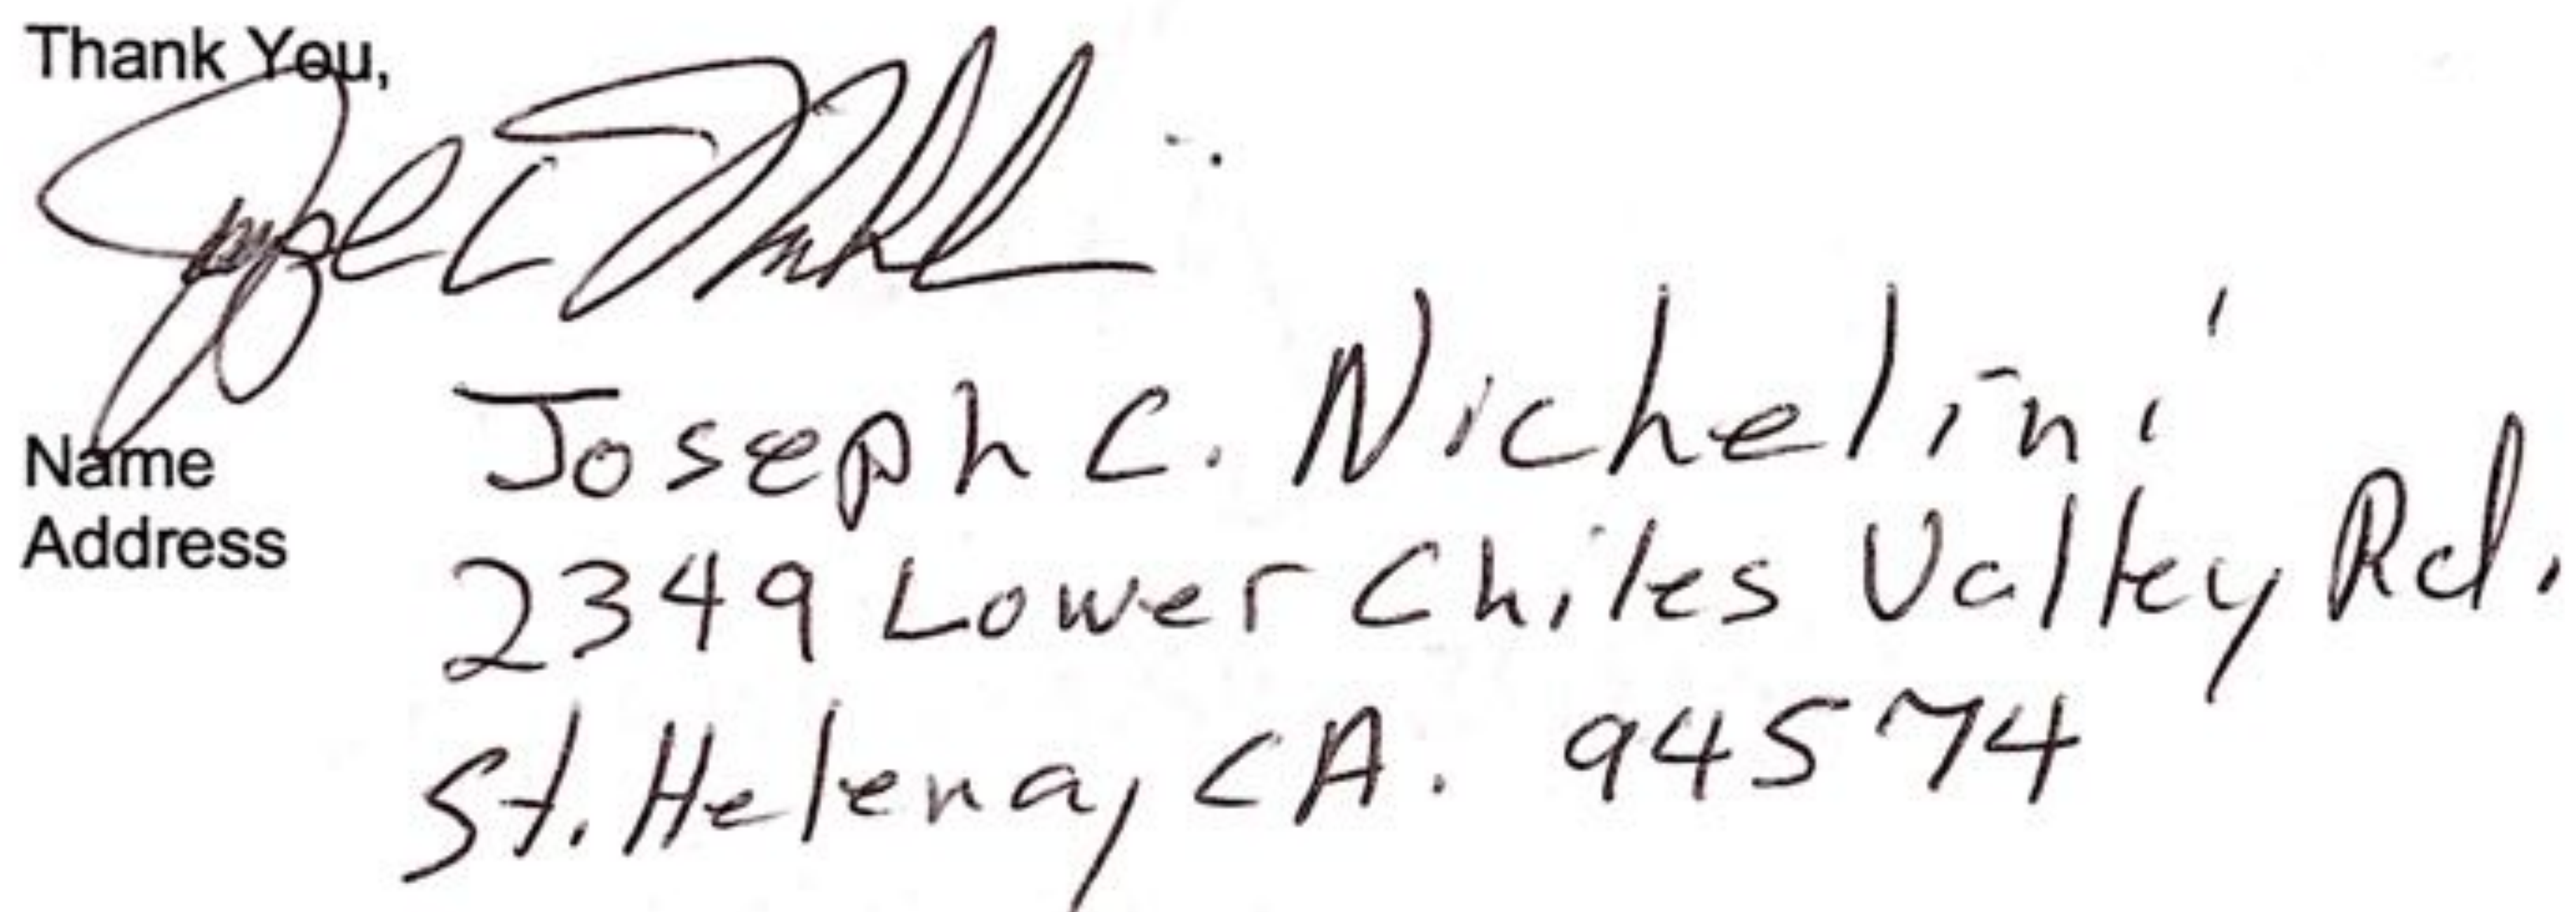 Thank You,
Name Joseph C. Nichelini
Address 2349 Lower Chiles Valley Rd.
St. Helena, CA. 94574